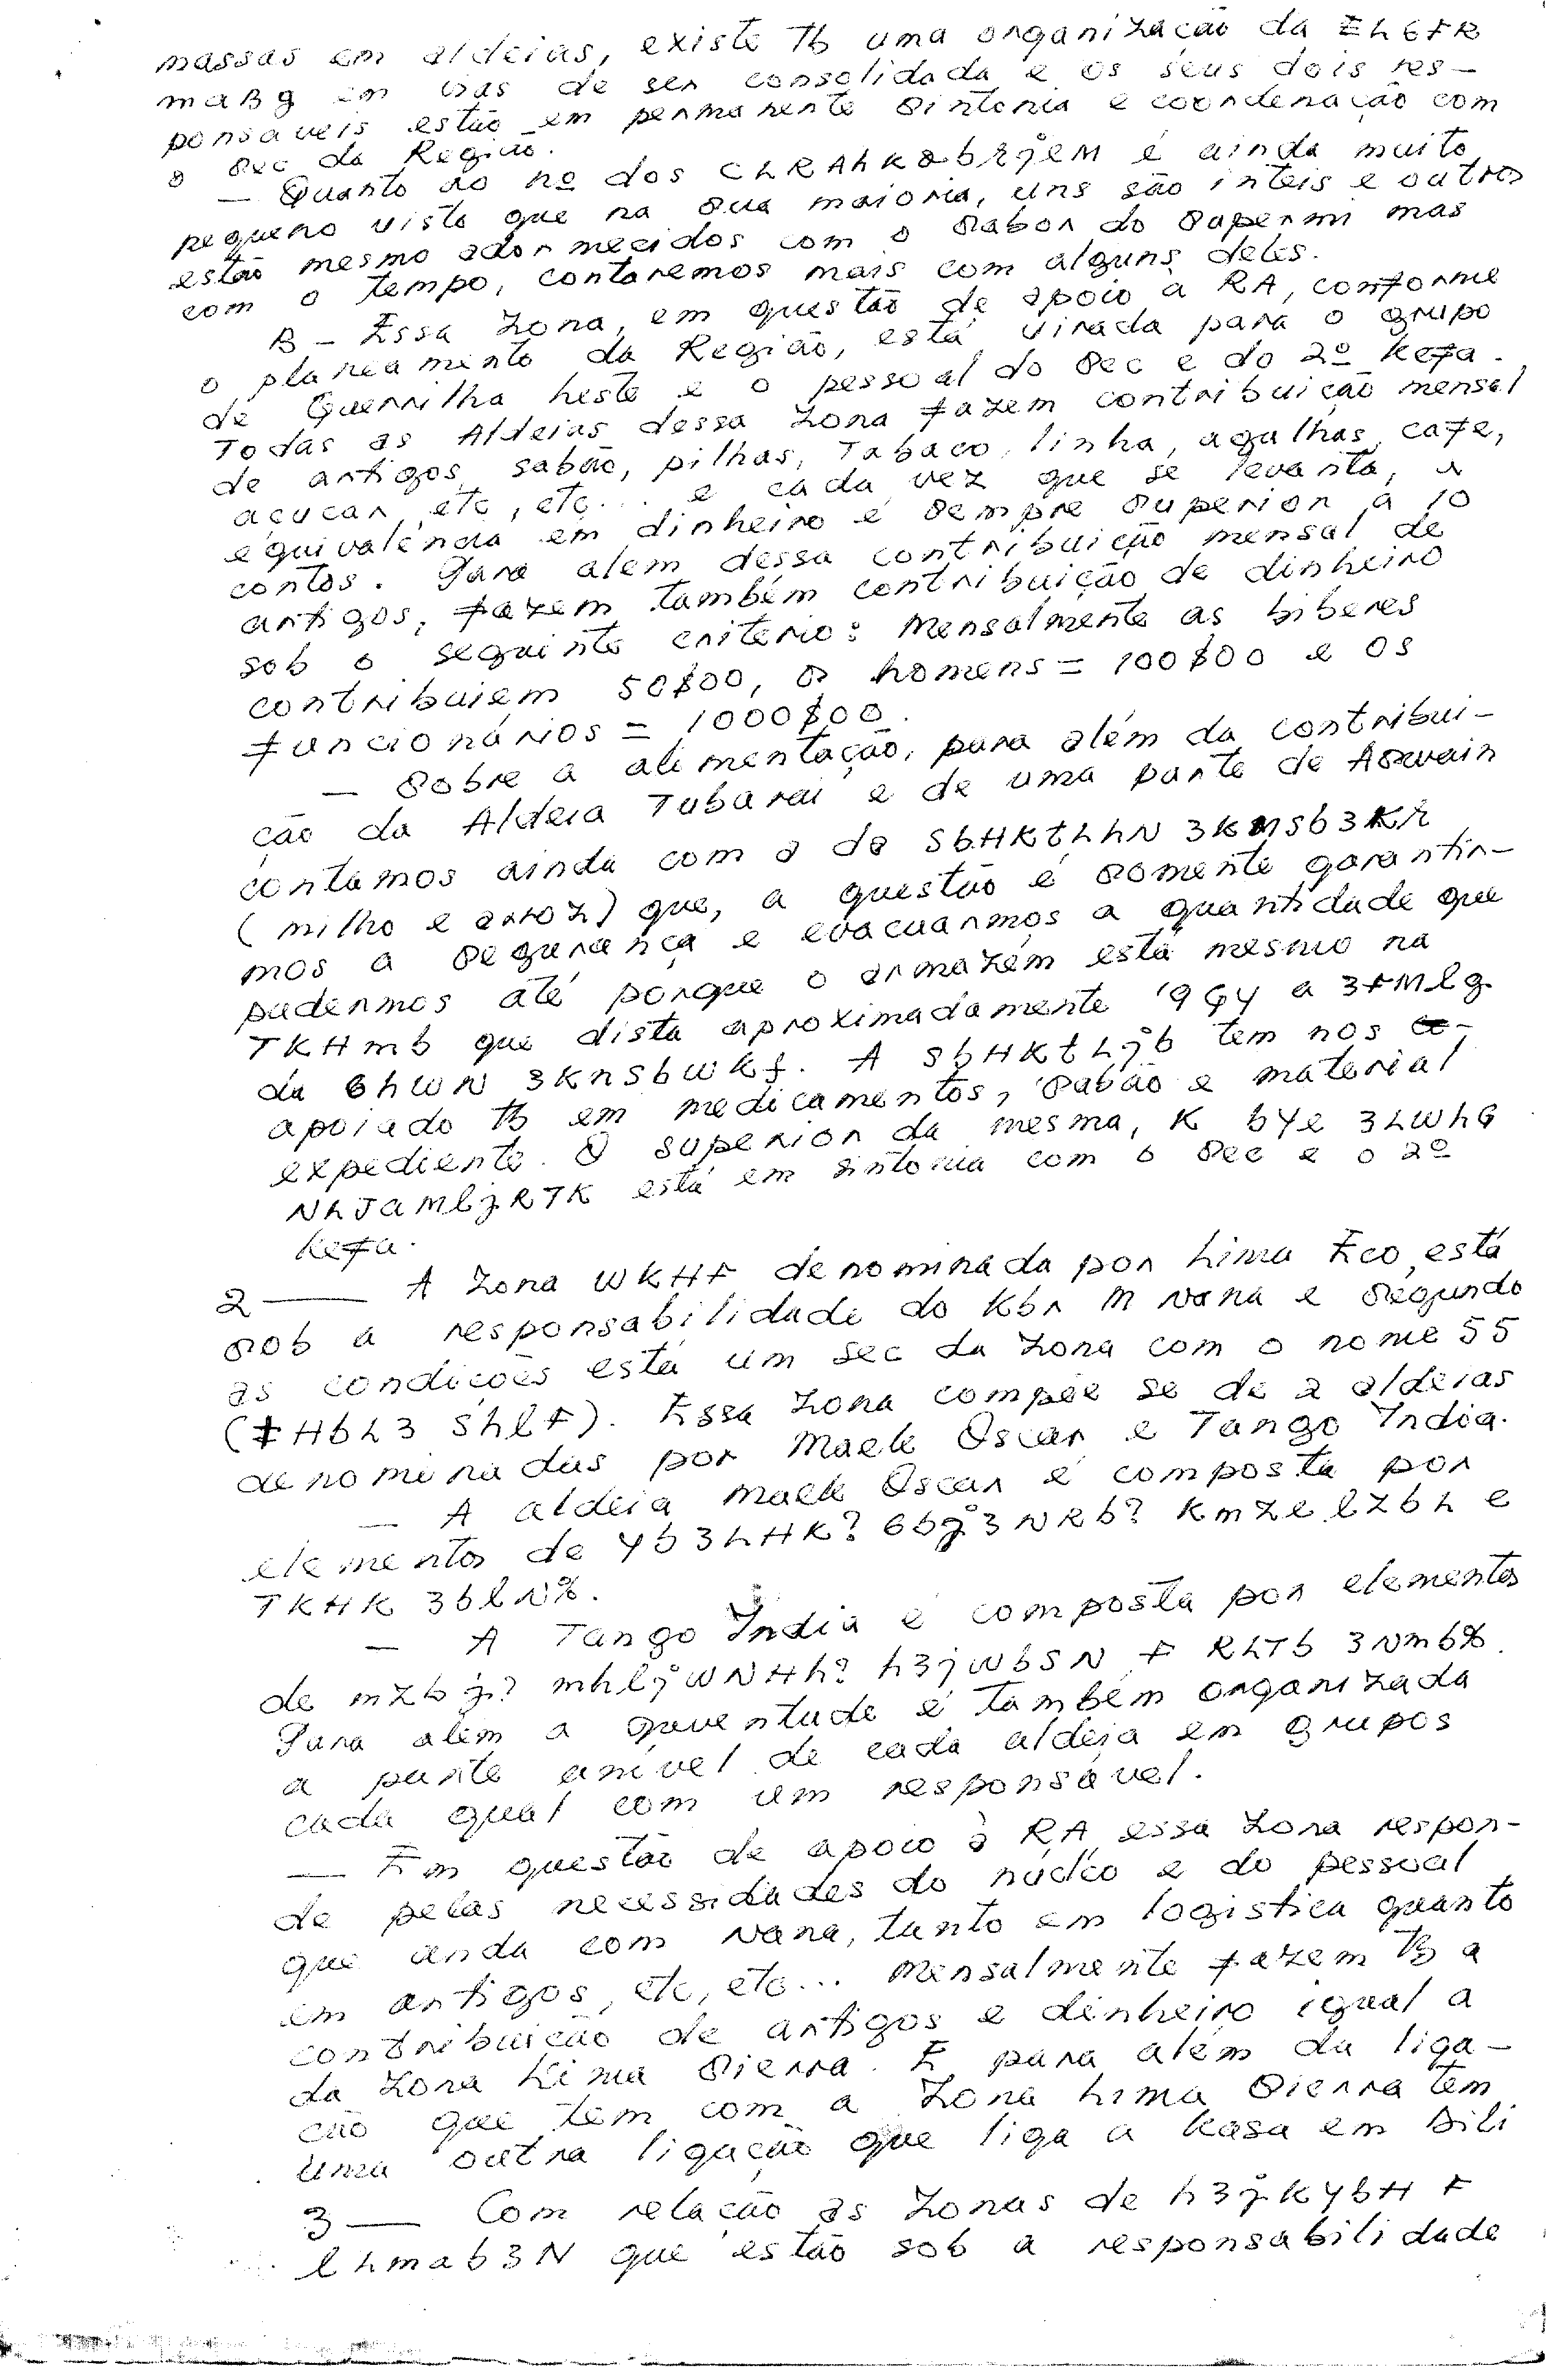 massas em aldeias, existe Tb uma organização da Eh6FR
maB9 em vias de ser consolidada e os seus dois res-
ponsaveis estão em permanente sintonia e coordenação com
o sec da Região.
— Quanto ao nº dos é ainda muito
pequeno visto que na sua maioria, uns são inteis e outros
estão mesmo adormecidos com o sabor do mas
com o tempo, contaremos mais com alguns deles.
B – Essa Zona, em questão de apoio à RA, conforme
o planeamento da Região, está virada para o grupo
de Guerrilha heste e o pessoal do sec e do 2º kefa.
Todas as Aldeias dessa Zona fazem contribuição mensal
de artigos, sabão, pilhas, Tabaco, linha, agulhas, cafe,
açucar, etc, etc... e cada vez que se levanta, a
equivalência em dinheiro é sempre superior a 10
contos. Para alem dessa contribuição mensal de
artigos, fazem também contribuição de dinheiro
sob o seguinte criterio: Mensalmente as biberes
contribuiem 50$00, os homens = 100$00 e os
funcionários = 1000$00.
— Sobre a alimentação, para além da contribui-
ção da Aldeia Tubarai e de uma parte de
contamos ainda com a da SbHKthhN 3KMSb3KR
(milho e arroz) que, a questão é somente garantir-
mos a segurança e evacuarmos a quantidade que
pudermos até porque o armazém está mesmo na
TKHmb que dista aproximadamente a
da 6hWN 3KnSbWKf. A tem nos
apoiado Tb em medicamentos, sabão e material
expediente. O superior da mesma, K bYe 3hWhG
está em sintonia com o sec e o 2º
kefa.
2 — A Zona WKHF denominada por Lima Eco, está
sob a responsabilidade do Kbr M Nana e segundo
as condições está um sec da Zona com o nome 55
(FHbh3 ShlF). Essa Zona compõe se de 2 aldeias
denominadas por Maek Oscar e Tango India.
— A aldeia Maek Oscar é composta por
elementos de Yb3hHK? KmZelZbh e
TKHK 3blN%.
— A Tango India é composta por elementos
de F RhTb 3Nmb%.
Para alem a juventude é também organizada
a parte anível de cada aldeia em grupos
cada qual com um responsável.
— Em questão de apoio à RA essa Zona respon-
de pelas necessidades do núcleo e do pessoal
que anda com Nana, tanto em logistica quanto
em artigos, etc, etc... Mensalmente fazem Tb a
contribuição de artigos e dinheiro igual a
da Zona Lima Sierra. E para além da liga-
ção que tem com a Zona Lima Sierra tem
uma outra ligação que liga a kasa em Dili
3 — Com relação as Zonas de F
lhmab3N que estão sob a responsabilidade